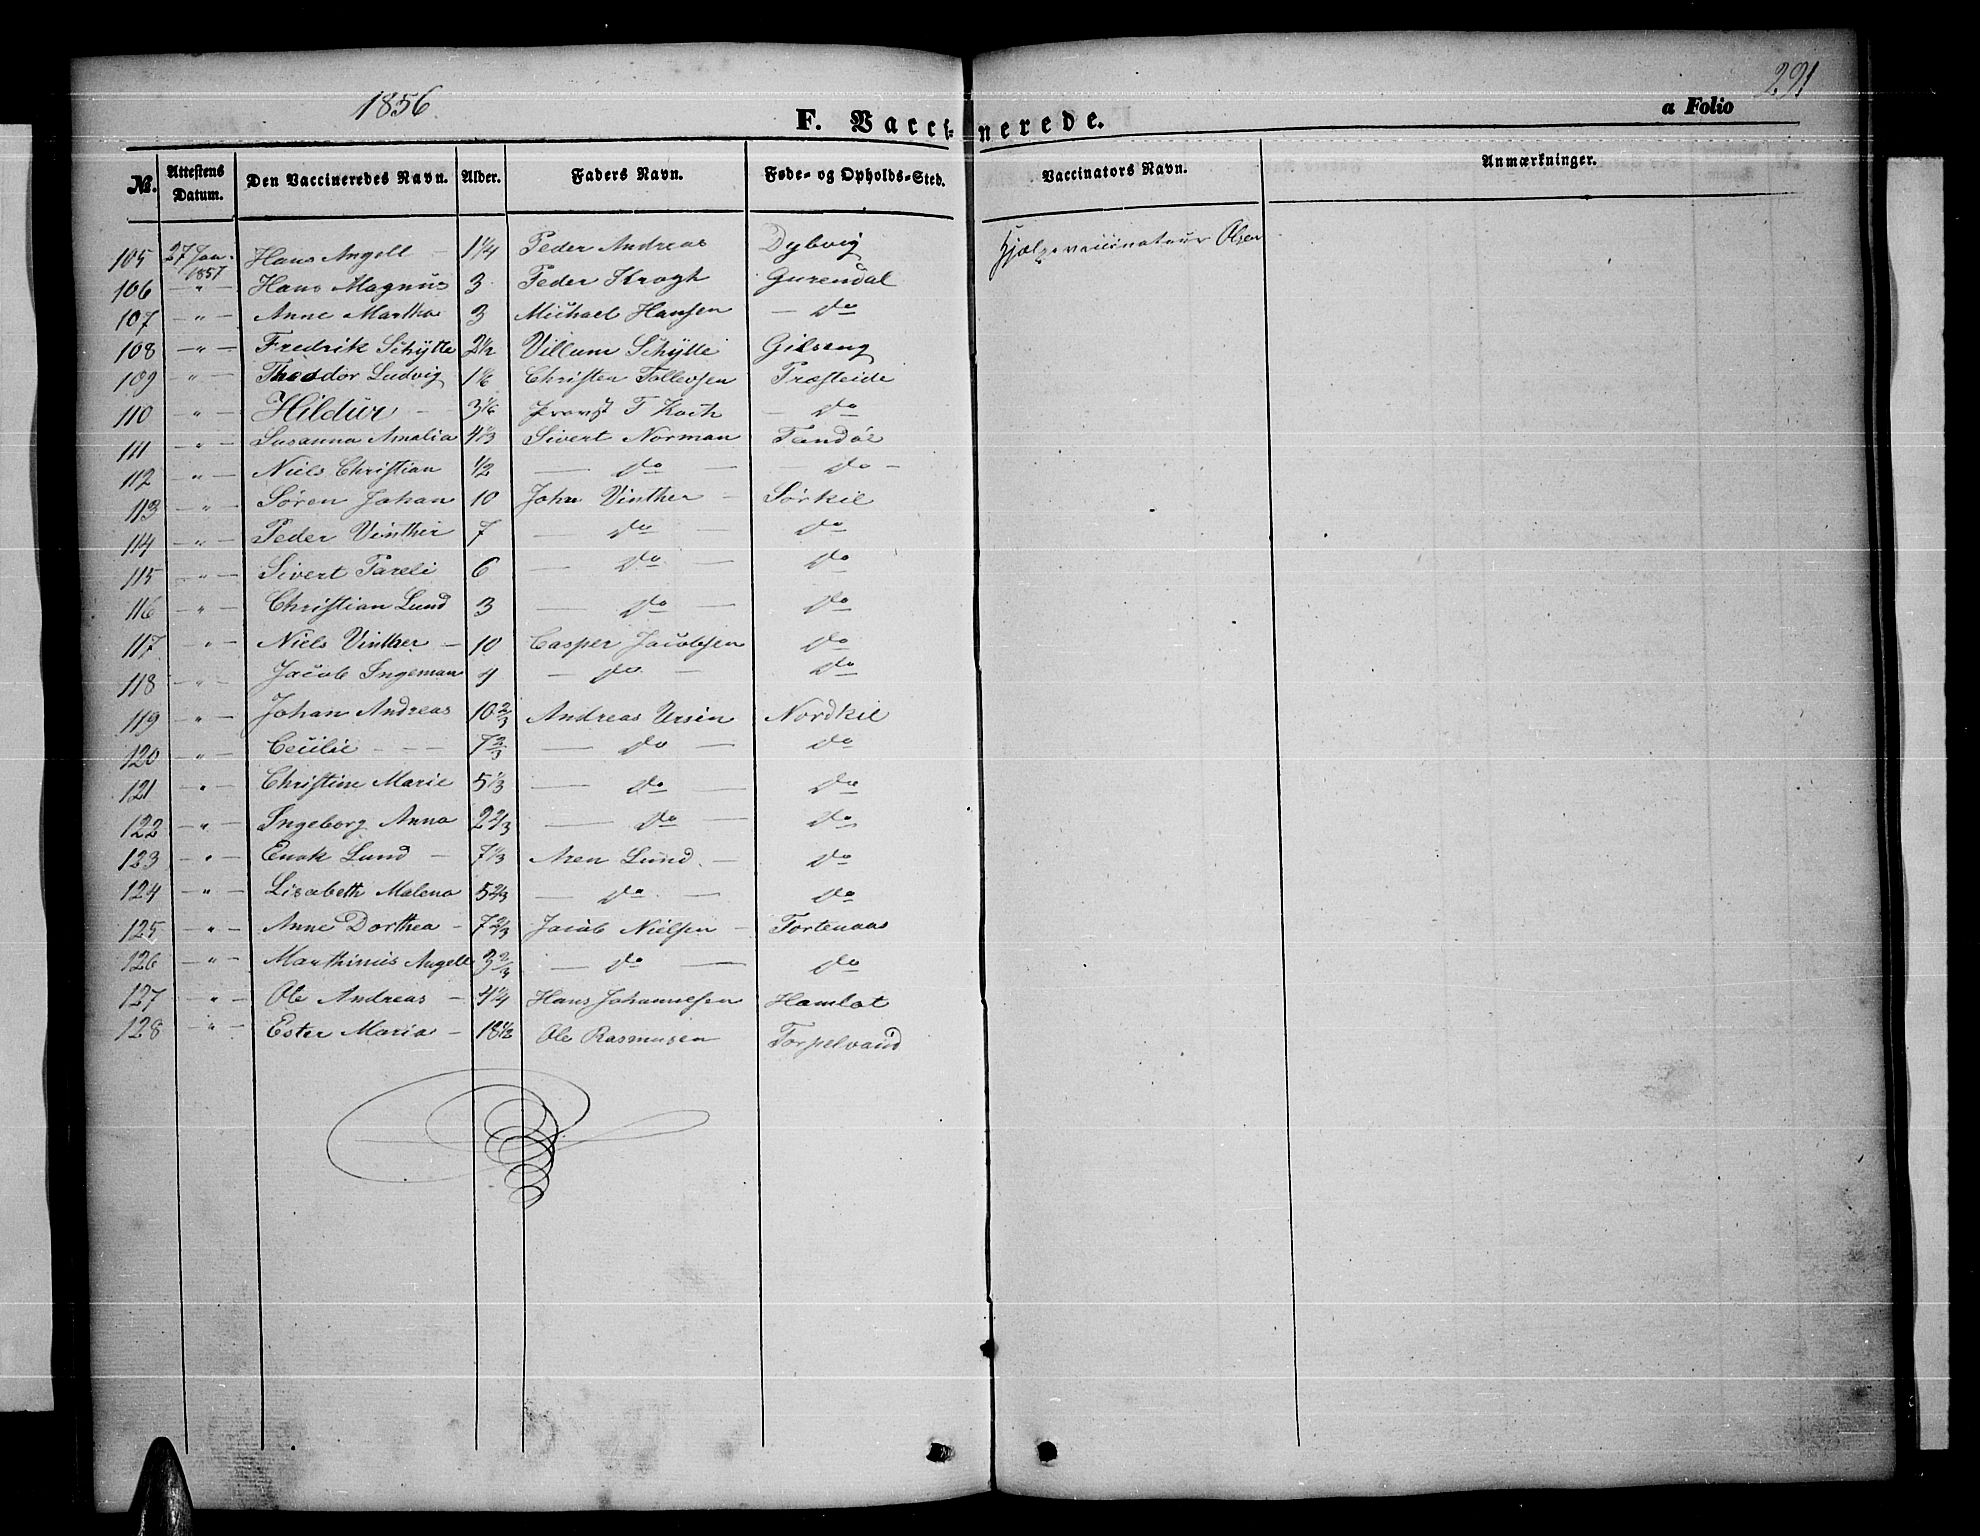 1856.
291
F. Vaccinerede.
a Folio
№. Attestens Datum. Den Vaccineredes Navn. Alder. Faders Navn. Føde- og Opholds-Sted. Vaccinators Navn. Anmærkninger.
105 27 Jan. 1857 Hans Angell - 1 1/4 Peder Andreas Dybvig Hjælpevaccinateur Olsen
106 - " - Hans Magnus 3 Peder Krogh Gurendal
107 - " - Anne Martha 3 Michael Hansen - do
108 - " - Fredrik Schytte 2 1/2 Villum Schytte
109 - " - Theodor Ludvig 1 1/6 Christen Tollevsen Præsteide
110 - " - Hildur - 3 1/6 Provst F Koch - do
111 - " - Susanna Amalia 4 1/3 Sivert Norman
112 - " - Niels Christian 1/2 - do - do -
113 - " - Søren Johan 10 John Vinther - Sørkil
114 - " - Peder Vinther 7 - do - do
115 - " - Sivert Pareli 6 - do - do
116 - " - Christian Lund 3 - do - do
117 - " - Niels Vinther - 10 Casper Jacobsen do
118 - " - Jacob Ingeman - do - do
119 - " - Johan Andreas 10 2/3 Andreas Ursin Nordkil
120 - " - Cecilie - - - 7 2/3 - do - do
121 - " - Christine Marie 5 1/3 - do - do
122 - " - Ingeborg Anna 2 2/3 - do - do
123 - " - Enok Lund - 7 1/3 Aren Lund. - do
124 - " - Lisabeth Malena 5 2/3 - do - do
125 - " - Anne Dorthea - 7 2/3 Jacob Nielsen - Fortenaas
126 - " - Marthinus Angell 3 2/3 - do - do
127 - " - Ole Andreas - 4 1/4 Hans Johannesen Hamlot
128 - " - Ester Maria - 18 1/2 Ole Rasmusen Forpelvand